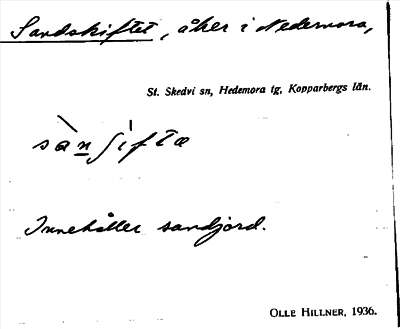 Sandskiftet, åker i Nedernora,
St. Skedvi sn, Hedemora tg, Kopparbergs län.
sàn ʃìftæ
Innehåller sandjord.
OLLE HILLNER, 1936.